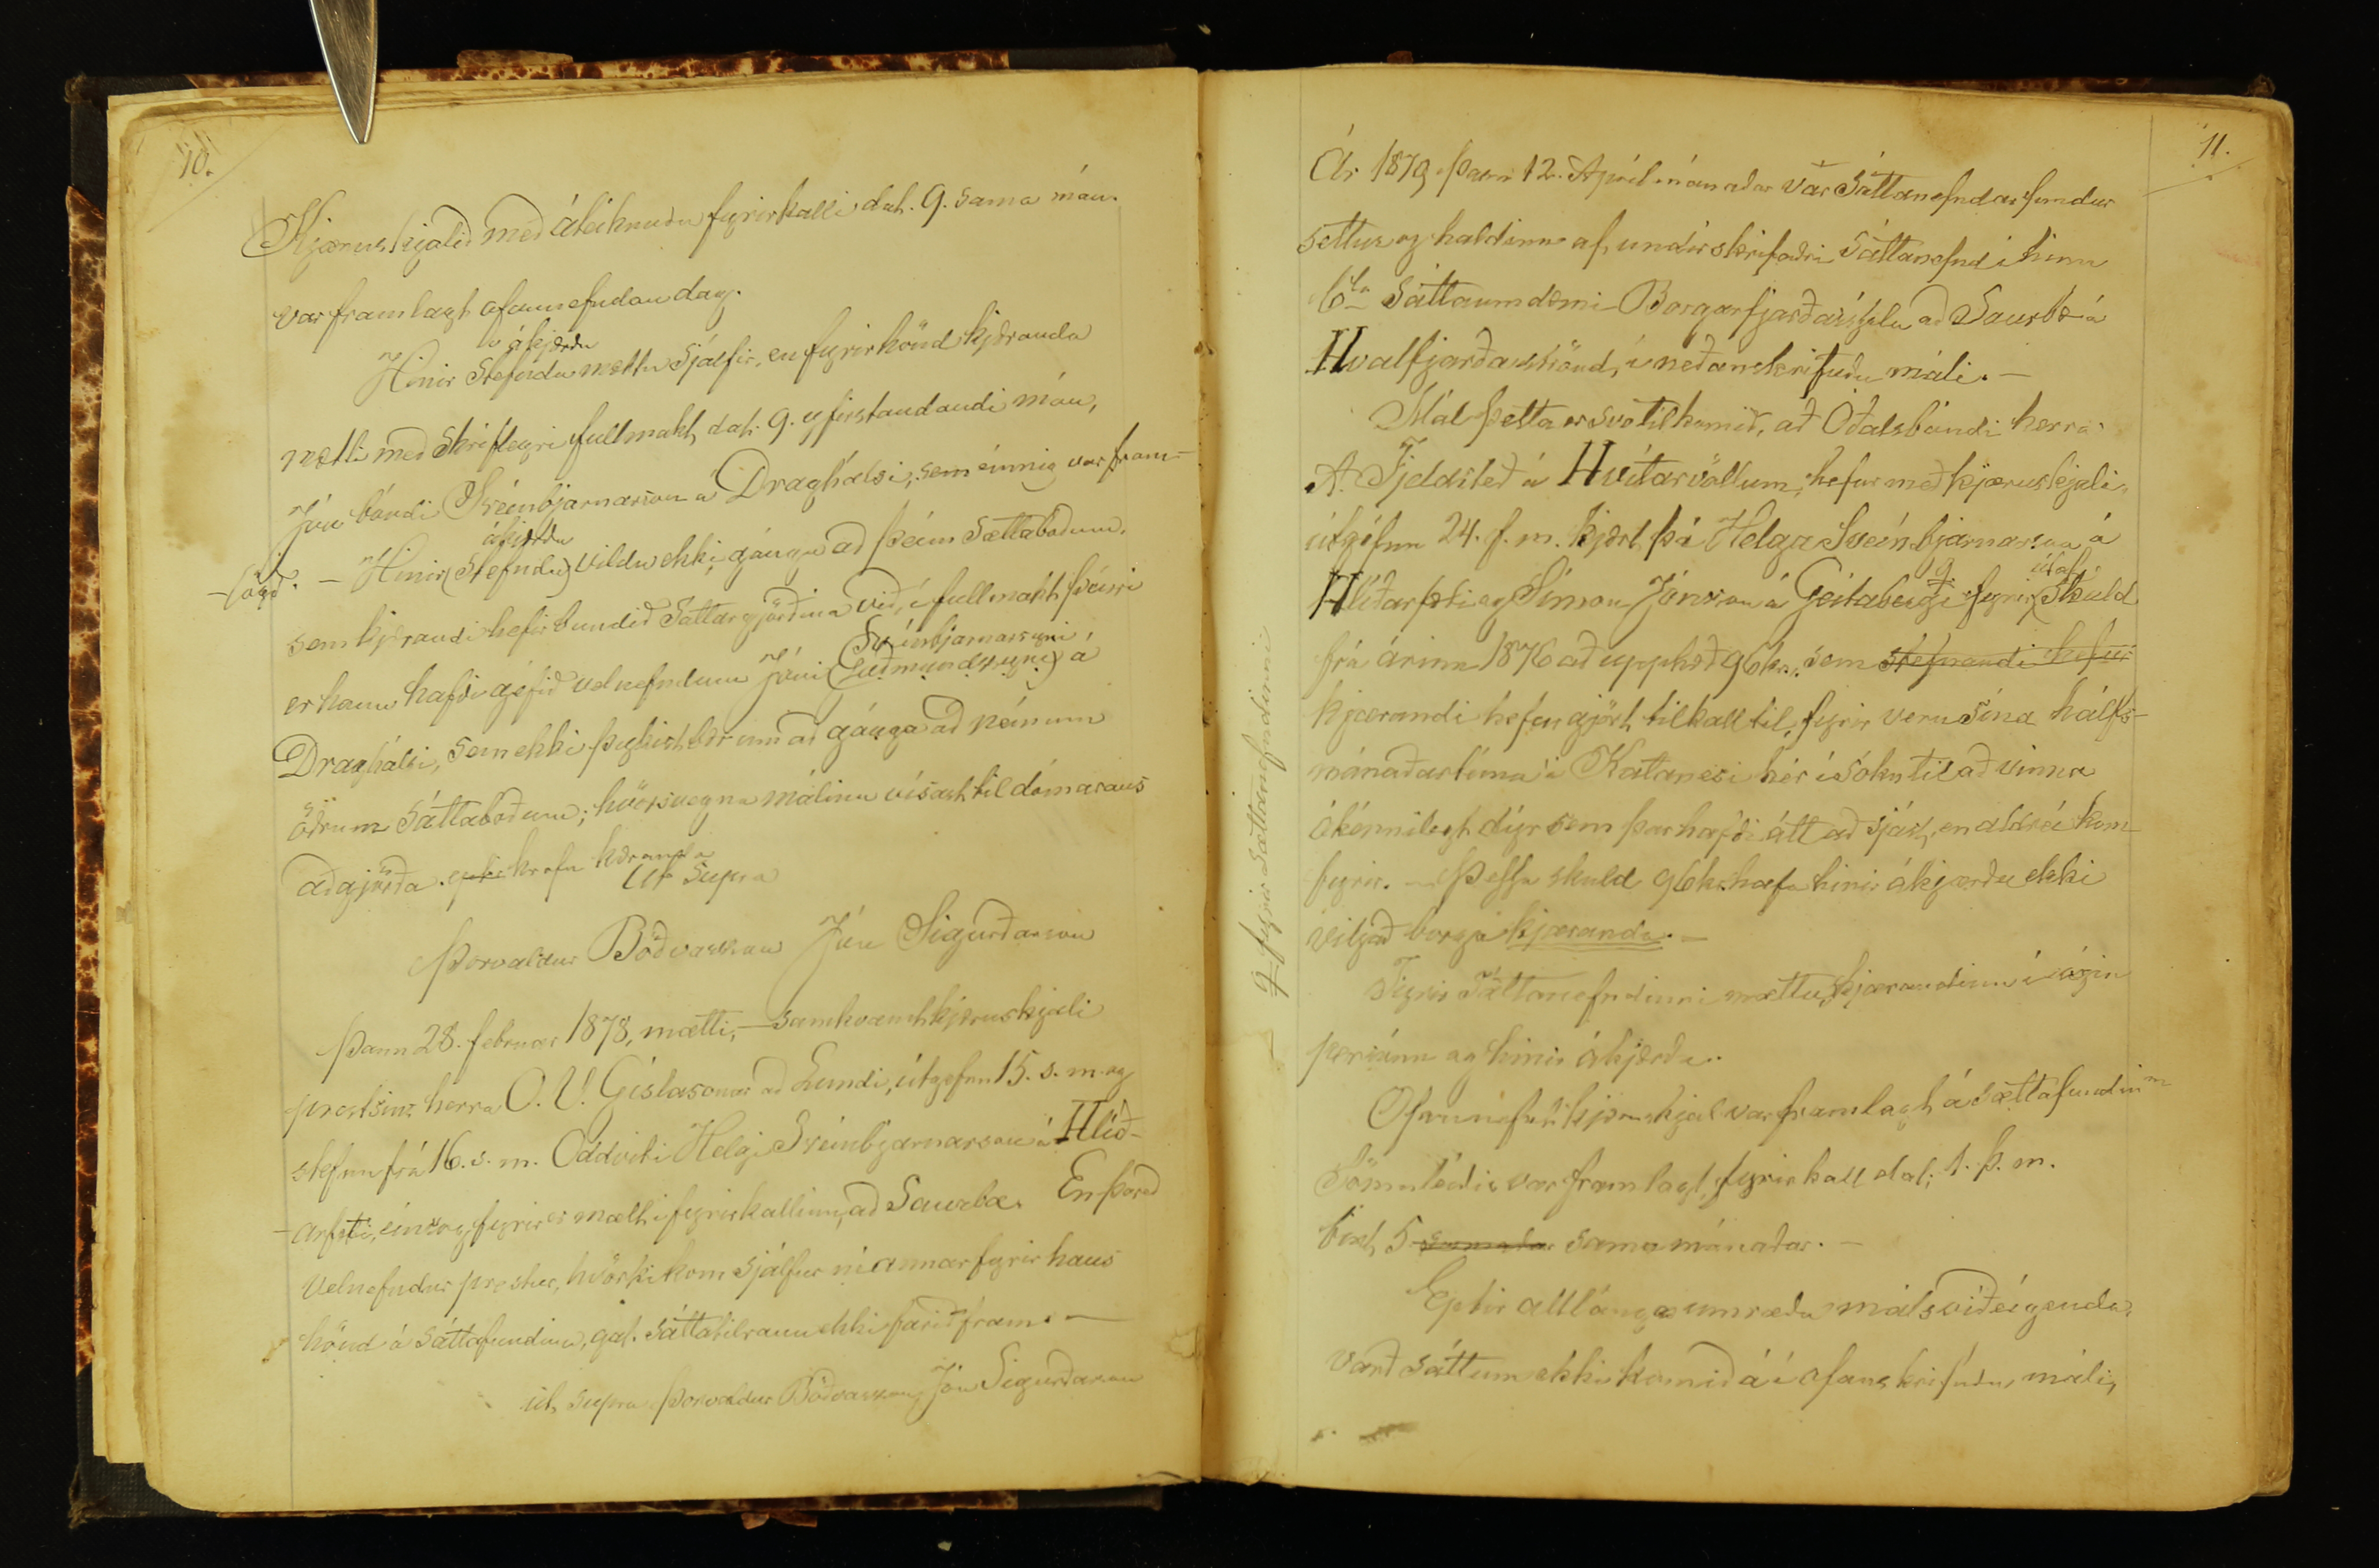 10.
Kjæruskjalið með áteiknuðu fyrirkalli dat. 9. sama mán.
var framlagt ofannefndan dag.
ákjærðu
Hinir Stefndu mættu sjálfir, en fyrir hönd kjæranda
mætti með skriflegri fullmakt, dat. 9. yfirstandandi mán,
Jón bóndi Sveinbjarnarson á Draghalsi, sem einnig var fram-
-lögð.
ákjærðu
– Hinir (Stefndu) vildu ekki ganga að þeim sættaboðum,
sem kjærandi hefir bundið sáttargjörðina við, í fullmakt þeirri
Sveinbjarnarsyni
er hann hafði géfið velnefndum Jóni (Guðmundssyni) á
Draghálsi, sem ekki þykist bær um að gánga að neinum
öðrum sáttaboðum; hvörsvegna málinu vísast til dómarans
aðgjörða krafu kæranda
Ut supra
Þorvaldur Böðvarsson Jón Sigurðarson
Þann 28. februar 1878, mætti, – samkvæmt kjæruskjali
prestsins herra O. V. Gíslasonar að Lundi, útgefnu 15. s. m. og
stefnu frá 16. s. m. Oddviti Helgi Sveinbjarnarson á Hlíð-
-arfæti, eins og fyrir er mælt í fyrirkallinu, að Saurbæ. En þareð
velnefndur prestur, hvörki kom sjálfur né annar fyrir hans
hönd á sáttafundinn, gat sáttatilraun ekki farið fram. –
ut supra Þorvaldur Böðvarsson, Jón Sigurðarson
fyrir sáttanefndinni
11.
Ár 1879 þann 12. Apríl mánaðar var Sáttanefndar fundur
settur og haldinn af undirskrifaðri Sáttanefnd í hinu
6ta Sáttaumdæmi Borgarfjarðarsýslu að Saurbæ á
Hvalfjarðarströnd, í neðanskrifuðu máli. –
Mál þetta er svo tilkomið, að Óðalsbóndi herra
A. Fjeldsteð á Hvítarvöllum, hefur með kjæruskjali
útgéfnu 24. f. m. kjært þá Helga Sveinbjarnarson á
g útaf
Hlíðarfæti og Símon Jónsson á Geitabergi fyrir (skuld
frá árinu 1876 að upphæð 96 kr. sem stefnandi hefur
kjærandi hefur gjört tilkall til, fyrir veru sína hálfs-
mánaðartíma í Katanesi hér í sókn til að vinna
ókénnilegt dýr sem þar hafði átt að sjást, en aldrei kom
fyrir. – Þessa skuld 96 kr. hafa hinir ákjærðu ekki
viljað borga kjæranda. –
Fyrir Sáttanefndinni mættu, kjærandinn í eigin
persónu og hinir ákjærðu.
Ofannefnt kjæruskjal var framlagt á Sættafundinum
Sömuleiðis var framlagt, fyrirkall dat. 1. þ. m.
birt, 5 sama mánaðar. –
Eptir alllánga umræðu málsviðeigenda,
varð sáttum ekki komið á í ofanskrifuðu máli,